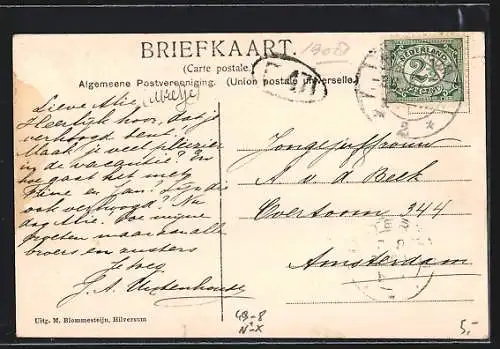 BRIEFKAART.
(Carte postale.)
Algemeene Postvereeniging. (Union postale universelle)
NEDERLAND
2½
CENT
2
Lieve Alie,
Heerlijk hoor, dat je
verhoogd bent!
Maak je veel plezier
in de vacantie? En
hoe gaat het met
Tine en Jan? Zijn die
ook verhoogd? Nu
dag Alie. Doe mijne
groeten maar aan alle
broers en zusters
Je toeg.
J. A.
Jongejuffrouw
A v. d Beek
Overtoom 344
Amsterdam
Uitg. M. Blommesteijn, Hilversum
GB-8
N-X
5,-